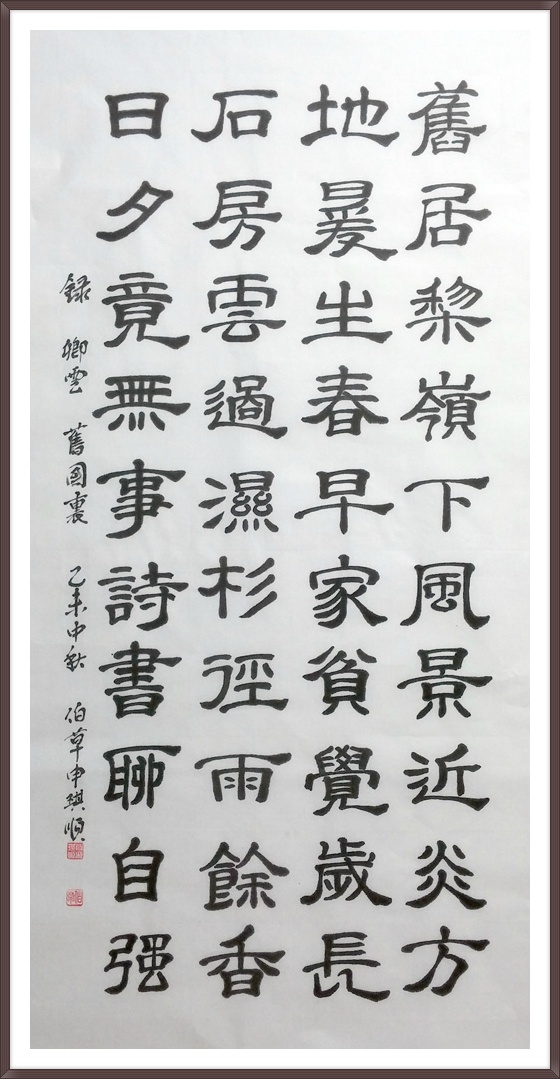 舊居黎嶺下風景近炎方
地暖生春早家貧覺歲長
石房雲過濕杉徑雨餘香
日夕竟無事詩書聊自强
錄 卿雲 舊國裏 乙未中秋 伯草申琪順